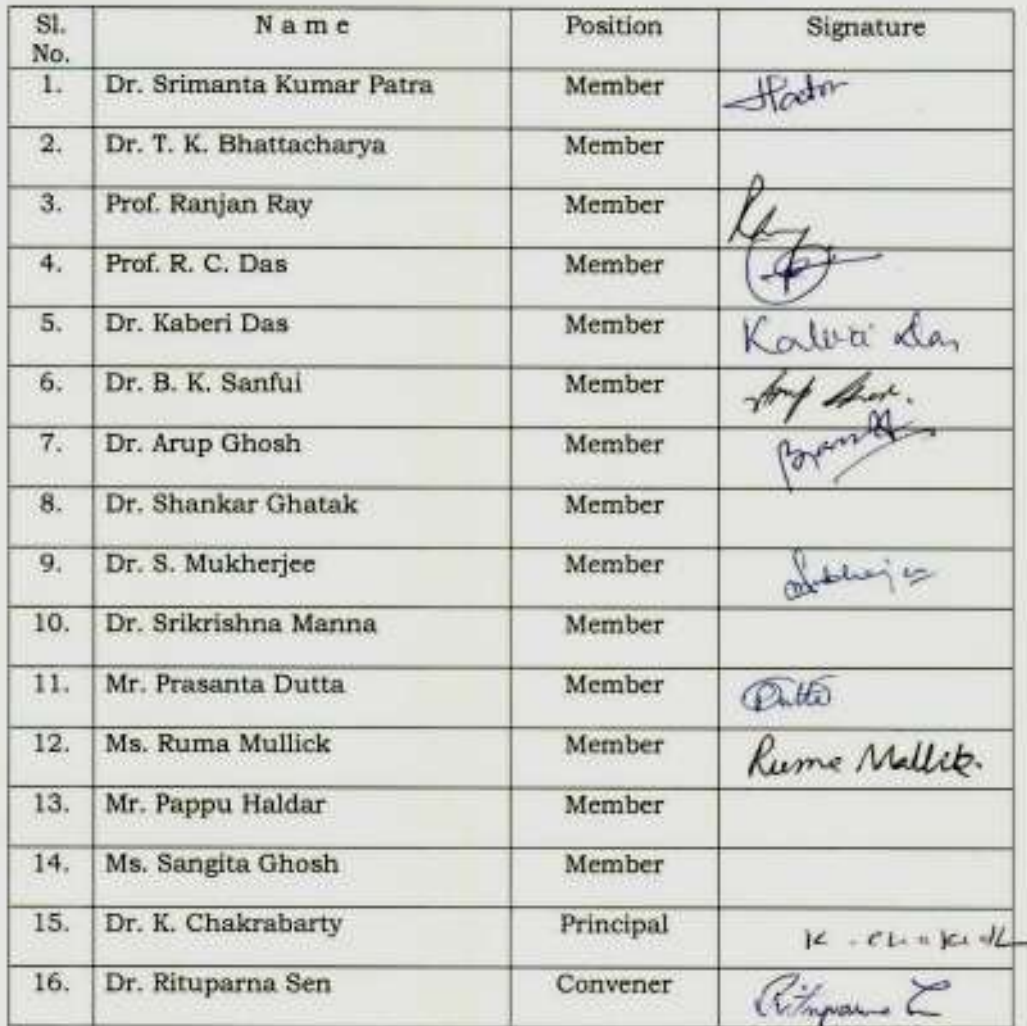 Sl. No. Name Position Signature
1. Dr. Srimanta Kumar Patra Member
2. Dr. T. K. Bhattacharya Member
3. Prof. Ranjan Ray Member
4. Prof. R. C. Das Member
5. Dr. Kaberi Das Member Kaberi Das
6. Dr. B. K. Sanfui Member
7. Dr. Arup Ghosh Member
8. Dr. Shankar Ghatak Member
9. Dr. S. Mukherjee Member
10. Dr. Srikrishna Manna Member
11. Mr. Prasanta Dutta Member
12. Ms. Ruma Mullick Member Ruma Mallik.
13. Mr. Pappu Haldar Member
14. Ms. Sangita Ghosh Member
15. Dr. K. Chakrabarty Principal
16. Dr. Rituparna Sen Convener Rituparna